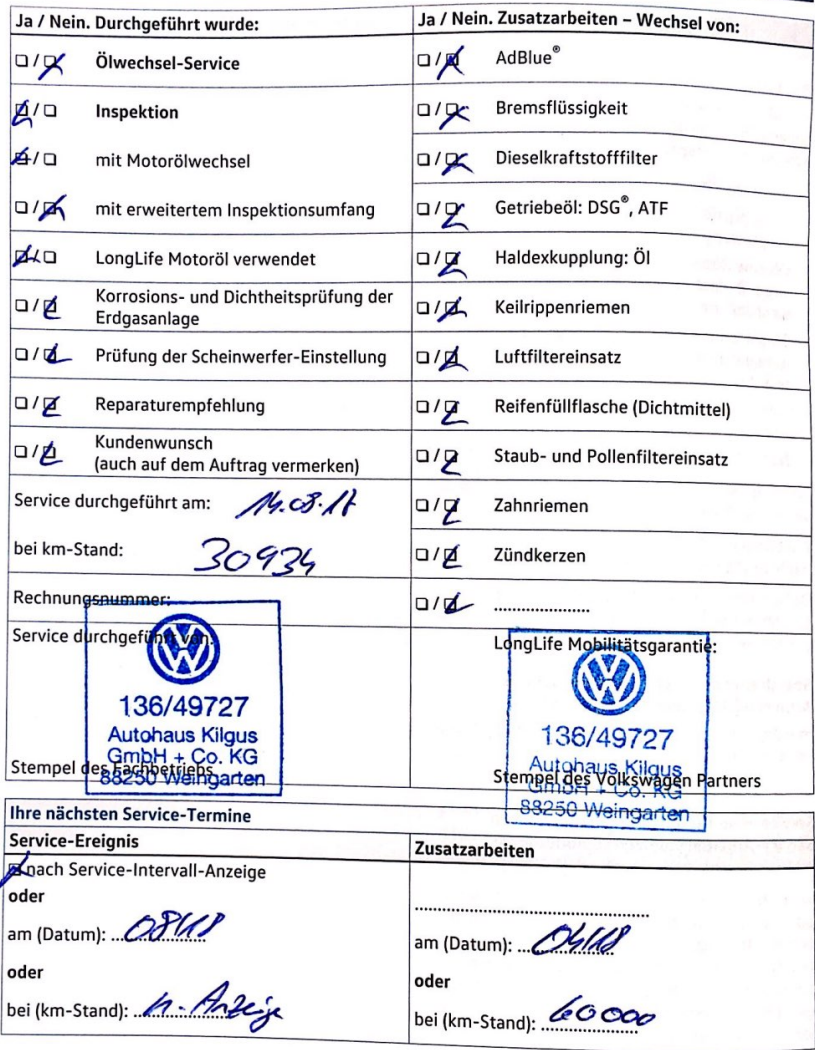 Ja / Nein. Durchgeführt wurde:
❏ / ☒ Ölwechsel-Service
☒ / ❏ Inspektion
☒ / ❏ mit Motorölwechsel
❏ / ☒ mit erweitertem Inspektionsumfang
☒ / ❏ LongLife Motoröl verwendet
❏ / ☒ Korrosions- und Dichtheitsprüfung der
Erdgasanlage
❏ / ☒ Prüfung der Scheinwerfer-Einstellung
❏ / ☒ Reparaturempfehlung
❏ / ☒ Kundenwunsch
(auch auf dem Auftrag vermerken)
Service durchgeführt am: 14.08.17
bei km-Stand: 30934
Rechnungsnummer:
Service durchgeführt von:
VW
136/49727
Autohaus Kilgus
GmbH + Co. KG
88250 Weingarten
Stempel des Fachbetriebs
Ja / Nein. Zusatzarbeiten – Wechsel von:
❏ / ☒ AdBlue®
❏ / ☒ Bremsflüssigkeit
❏ / ☒ Dieselkraftstofffilter
❏ / ☒ Getriebeöl: DSG®, ATF
❏ / ☒ Haldexkupplung: Öl
❏ / ☒ Keilrippenriemen
❏ / ☒ Luftfiltereinsatz
❏ / ☒ Reifenfüllflasche (Dichtmittel)
❏ / ☒ Staub- und Pollenfiltereinsatz
❏ / ☒ Zahnriemen
❏ / ☒ Zündkerzen
❏ / ☒ ......................
LongLife Mobilitätsgarantie:
VW
136/49727
Autohaus Kilgus
GmbH + Co. KG
88250 Weingarten
Stempel des Volkswagen Partners
Ihre nächsten Service-Termine
Service-Ereignis
☒ nach Service-Intervall-Anzeige
oder
am (Datum): 08/18
oder
bei (km-Stand): n. Anzeige
Zusatzarbeiten
......................
am (Datum): 04/18
oder
bei (km-Stand): 60000